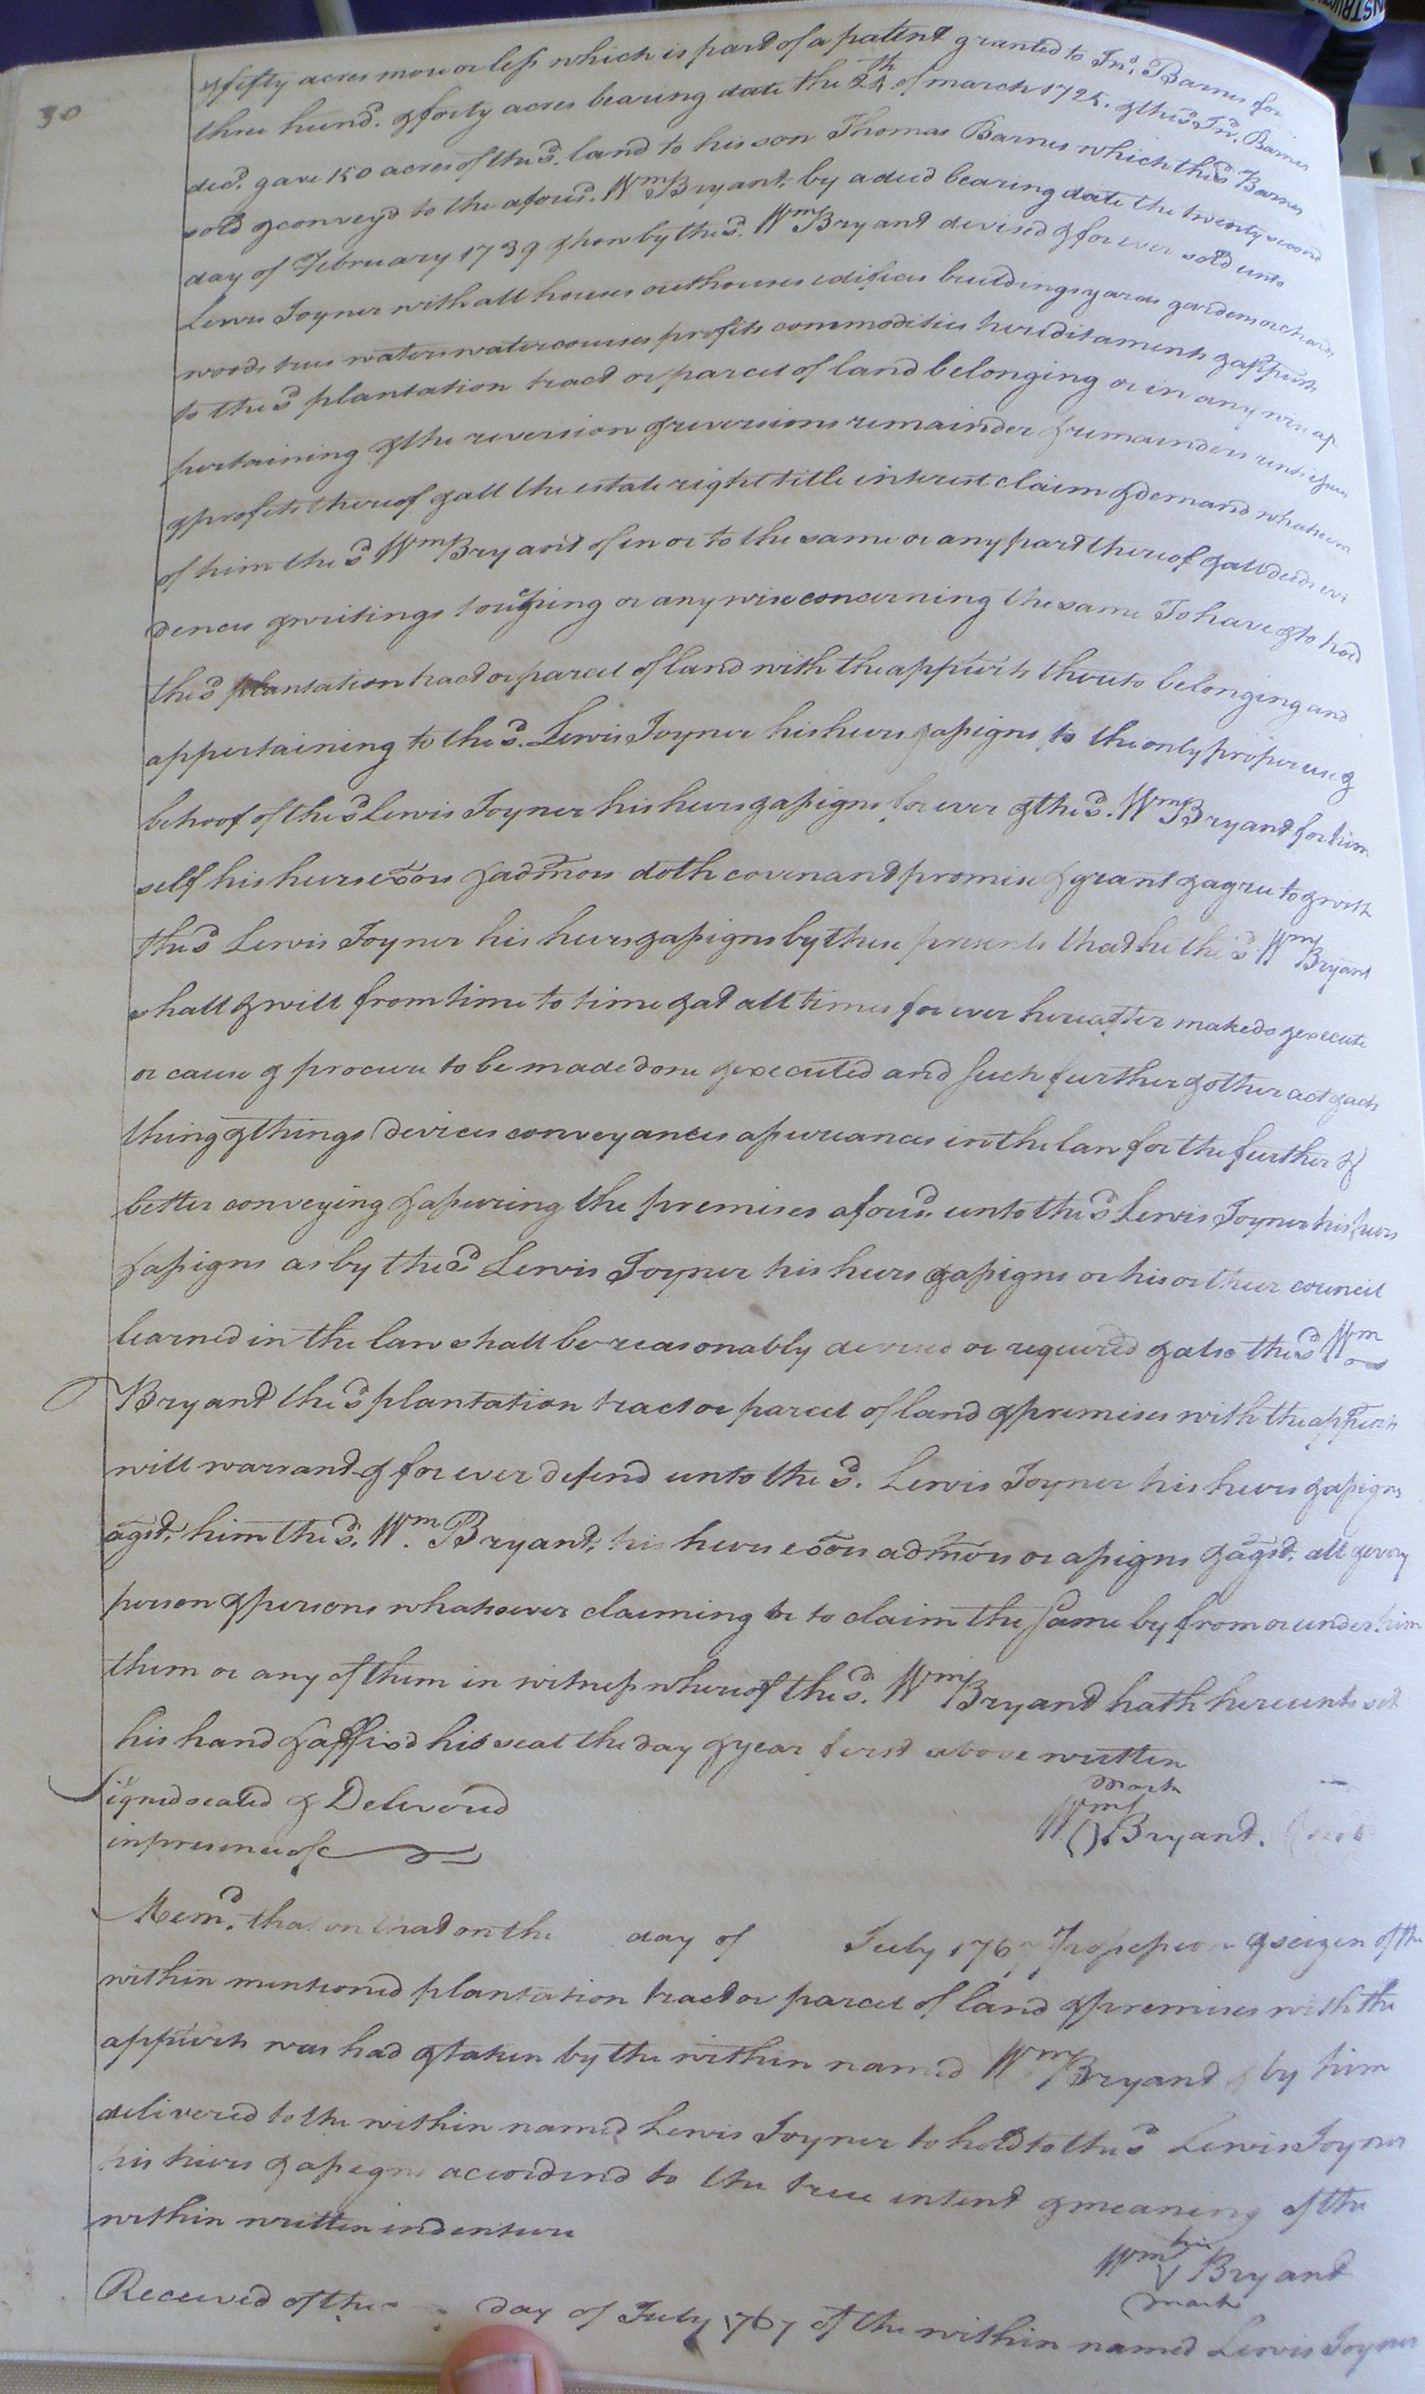 30
& fifty acres more or less which is part of a patent granted to Jno. Barnes for
three hund. & forty acres bearing date the 24th of march 1725. & the sd Jno. Barnes
decd. gave 150 acres of the sd. land to his son Thomas Barnes which the sd Barnes
sold & convey'd to the aforesd. Wm Bryant, by a deed bearing date the twenty second
day of February 1739 & now by the sd. Wm Bryant devised & for ever sold unto
Lewis Joyner with all houses outhouses edifices buildings yards gardens orchards
woods trees waters watercourses profits commodities hereditaments & appurts
to the sd plantation tract or parcel of land belonging or in any wise ap
pertaining & the reversion & reversions remainder & remainders rents issues
& profits thereof & all the estate right title interest claim & demand whatsoever
of him the sd Wm Bryant of in or to the same or any part thereof & all deeds evi
dences & writings touching or any wise concerning the same To have & to hold
the sd plantation tract or parcel of land with the appurts thereto belonging and
appertaining to the sd. Lewis Joyner his heirs & assigns to the only proper use &
behoof of the sd Lewis Joyner his heirs & assigns for ever & the sd. Wm Bryant for him
self his heirs exors & admors doth covenant promise & grant & agree to & with
the sd Lewis Joyner his heirs & assigns by these presents that he the sd Wm Bryant
shall & will from time to time & at all times for ever hereafter make do & execute
or cause & procure to be made done & executed and such further & other act & acts
thing & things devices conveyances assurances in the law for the further &
better conveying & assuring the premises aforesd. unto the sd Lewis Joyner his heirs
& assigns as by the sd Lewis Joyner his heirs & assigns or his or their council
learned in the law shall be reasonably devised or required & also the sd Wm
Bryant the sd plantation tract or parcel of land & premises with the appurts
will warrant & for ever defend unto the sd. Lewis Joyner his heirs & assigns
agst. him the sd. Wm. Bryant, his heirs exors admors or assigns & agst. all & every
person & persons whatsoever claiming or to claim the same by from or under him
them or any of them in witness whereof the sd. Wm Bryant hath hereunto set
his hand & affixd his seal the day & year first above written
Signed sealed & Delivered
in presence of
mark
Wm () Bryant. (seal)
Memd. that on the day of July 1767 possession & seizen of the
within mentioned plantation tract or parcel of land & premises with the
appurts was had & taken by the within named Wm Bryant & by him
delivered to the within named Lewis Joyner to hold to the sd Lewis Joyner
his heirs & assigns accordind to the true intent & meaning of the
within written indenture
his
Wm V Bryant
mark
Received of the day of July 1767 of the within named Lewis Joyner